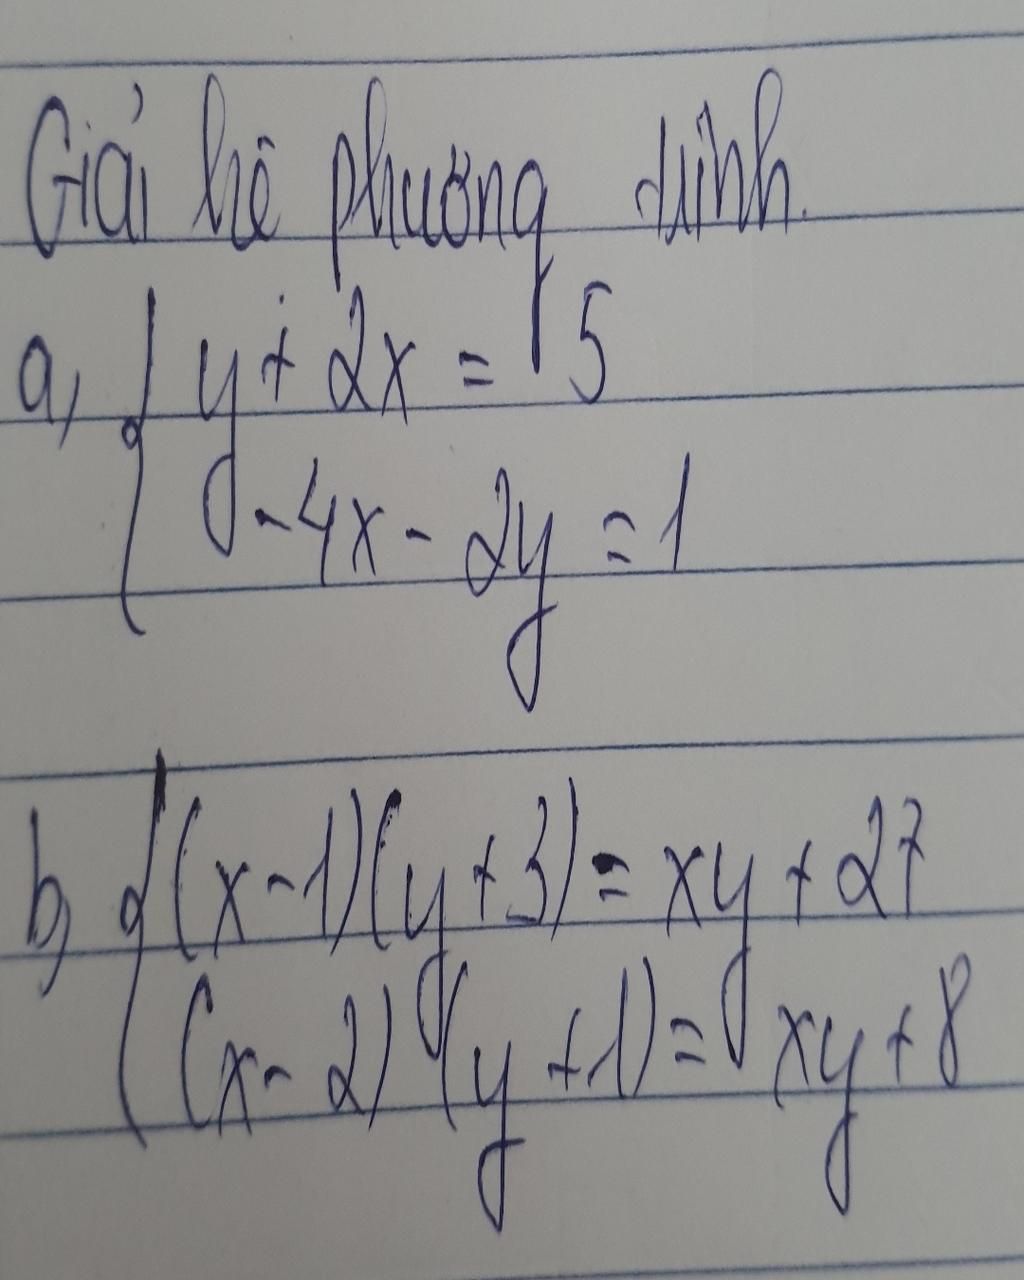 Giải hệ phương trình.
a, { y + 2x = 5
-4x - 2y = 1
b, { (x-1)(y+3) = xy + 27
(x-2)(y+1) = xy + 8